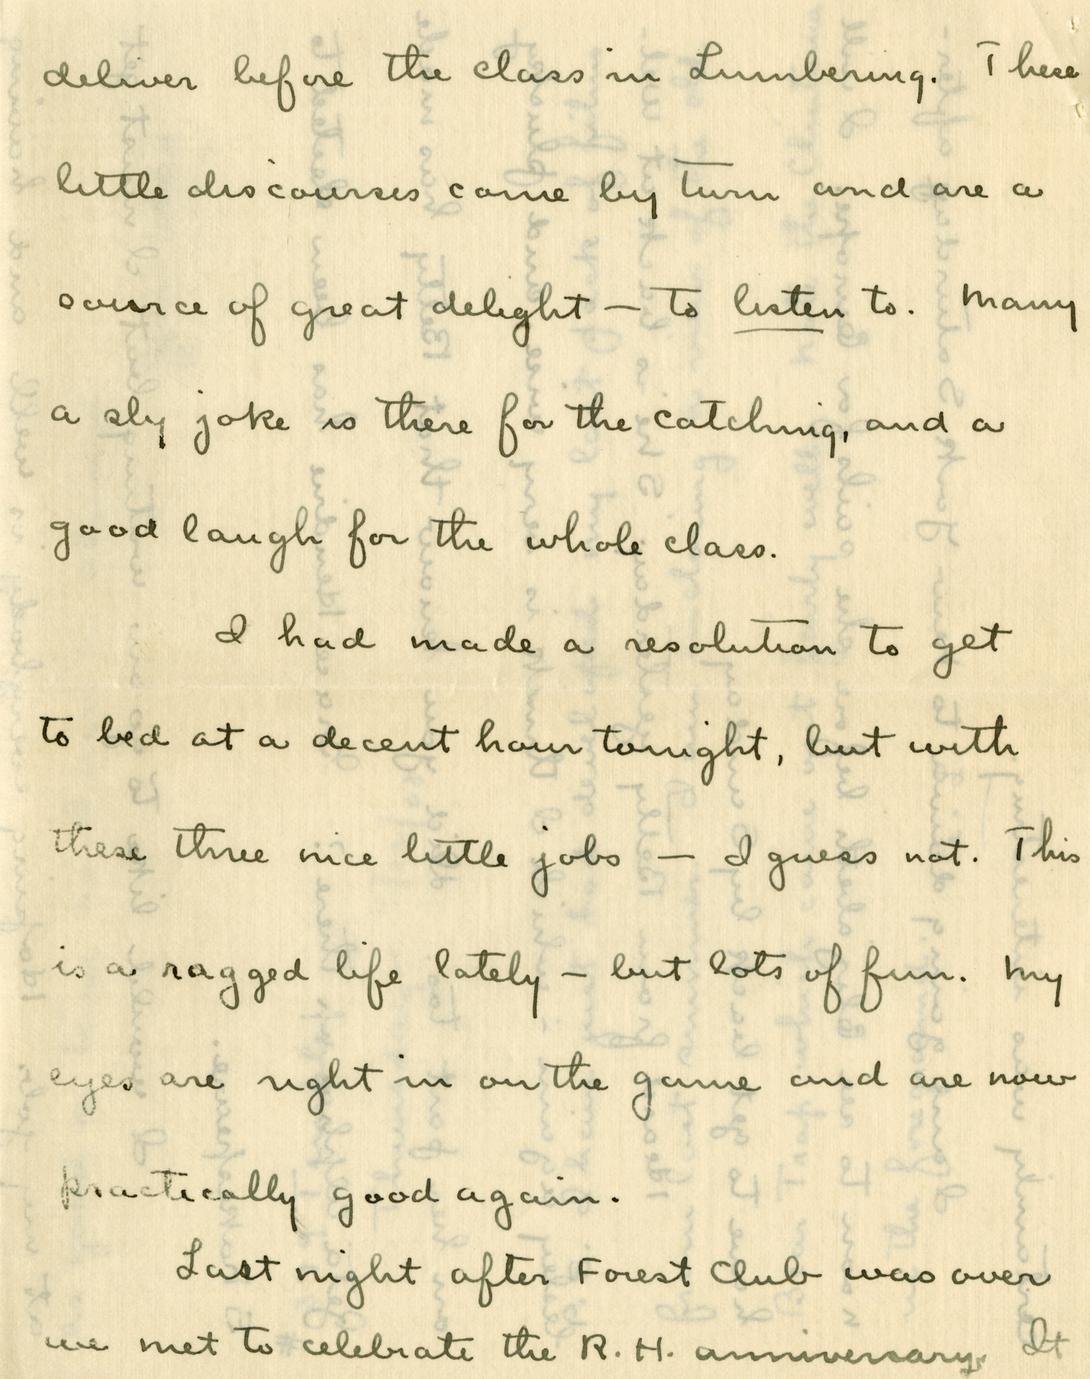 deliver before the class in Lumbering. These
little discourses come by turn and are a
source of great delight — to listen to. Many
a sly joke is there for the catching, and a
good laugh for the whole class.
I had made a resolution to get
to bed at a decent hour tonight, but with
these three nice little jobs — I guess not. This
is a ragged life lately — but lots of fun. My
eyes are right in on the game and are now
practically good again.
Last night after Forest Club was over
we met to celebrate the R. H. anniversary. It